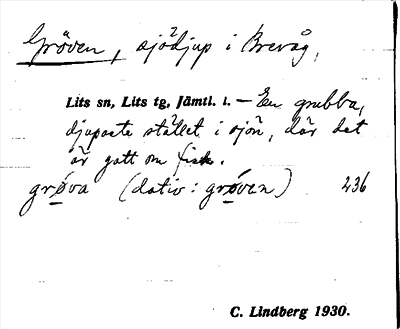 Gröven, sjödjup i Brevåg,
Lits sn, Lits tg, Jämtl. l. — En grubba,
djupaste stället i sjön, där det
är gott om fisk.
grǿva (dativ: grǿven) 236
C. Lindberg 1930.